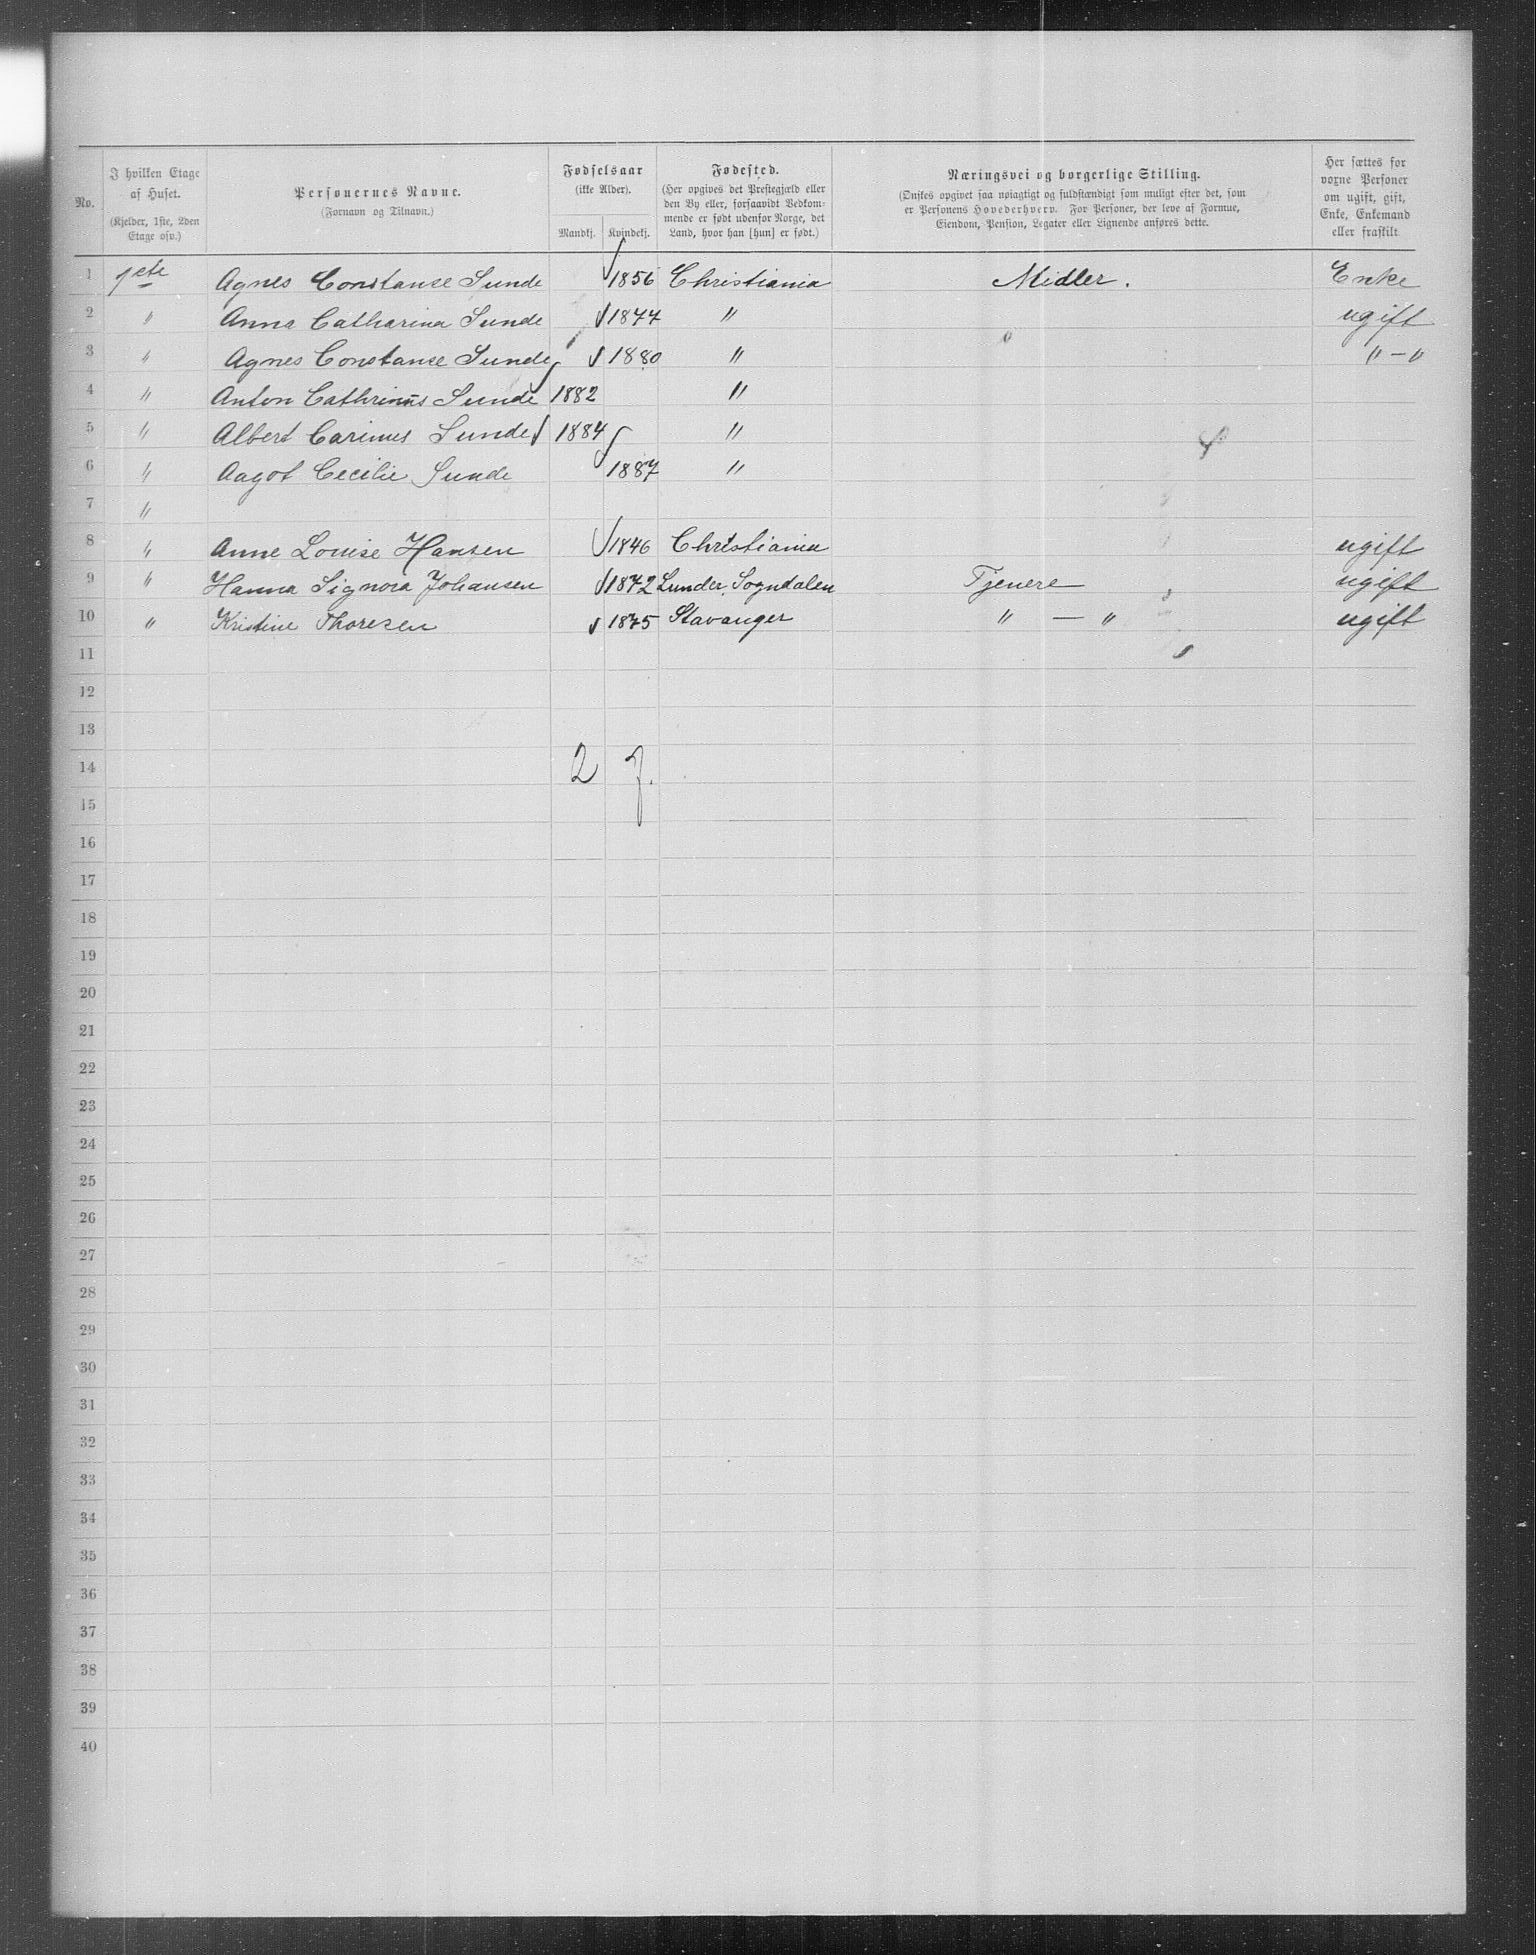 No. | I hvilken Etage af Huset. (Kjelder, 1ste, 2den Etage osv.) | Personernes Navne. (Fornavn og Tilnavn.) | Fødselsaar (ikke Alder). Mandkj. | Kvindekj. | Fødested. (Her opgives det Prestegjæld eller den By eller, forsaavidt Vedkommende er født udenfor Norge, det Land, hvor han [hun] er født.) | Næringsvei og borgerlige Stilling. (Ønskes opgivet saa nøiagtigt og fuldstændigt som muligt efter det, som er Personens Hovederhverv. For Personer, der leve af Formue, Eiendom, Pension, Legater eller Lignende anføres dette. | Her sættes for voxne Personer om ugift, gift, Enke, Enkemand eller fraskilt
1 | 1ste | Agnes Constanse Sunde | | 1856 | Christiania | Midler. | Enke
2 | " | Anna Catharina Sunde | | 1877 | " | | ugift
3 | " | Agnes Constanse Sunde | | 1880 | " | | "—"
4 | " | Anton Cathrinus Sunde | 1882 | | "
5 | " | Albert Carinus Sunde | 1884 | | "
6 | " | Aagot Cecilie Sunde | | 1887 | "
7 | "
8 | " | Anne Louise Hansen | | 1846 | Christiania | | ugift
9 | " | Hanna Signora Johansen | | 1872 | Lunder, Sogndalen | Tjenere | ugift
10 | " | Kristine Thoresen | | 1875 | Stavanger | " — " | ugift
11
12
13
14 | | | 2 | 7.
15
16
17
18
19
20
21
22
23
24
25
26
27
28
29
30
31
32
33
34
35
36
37
38
39
40